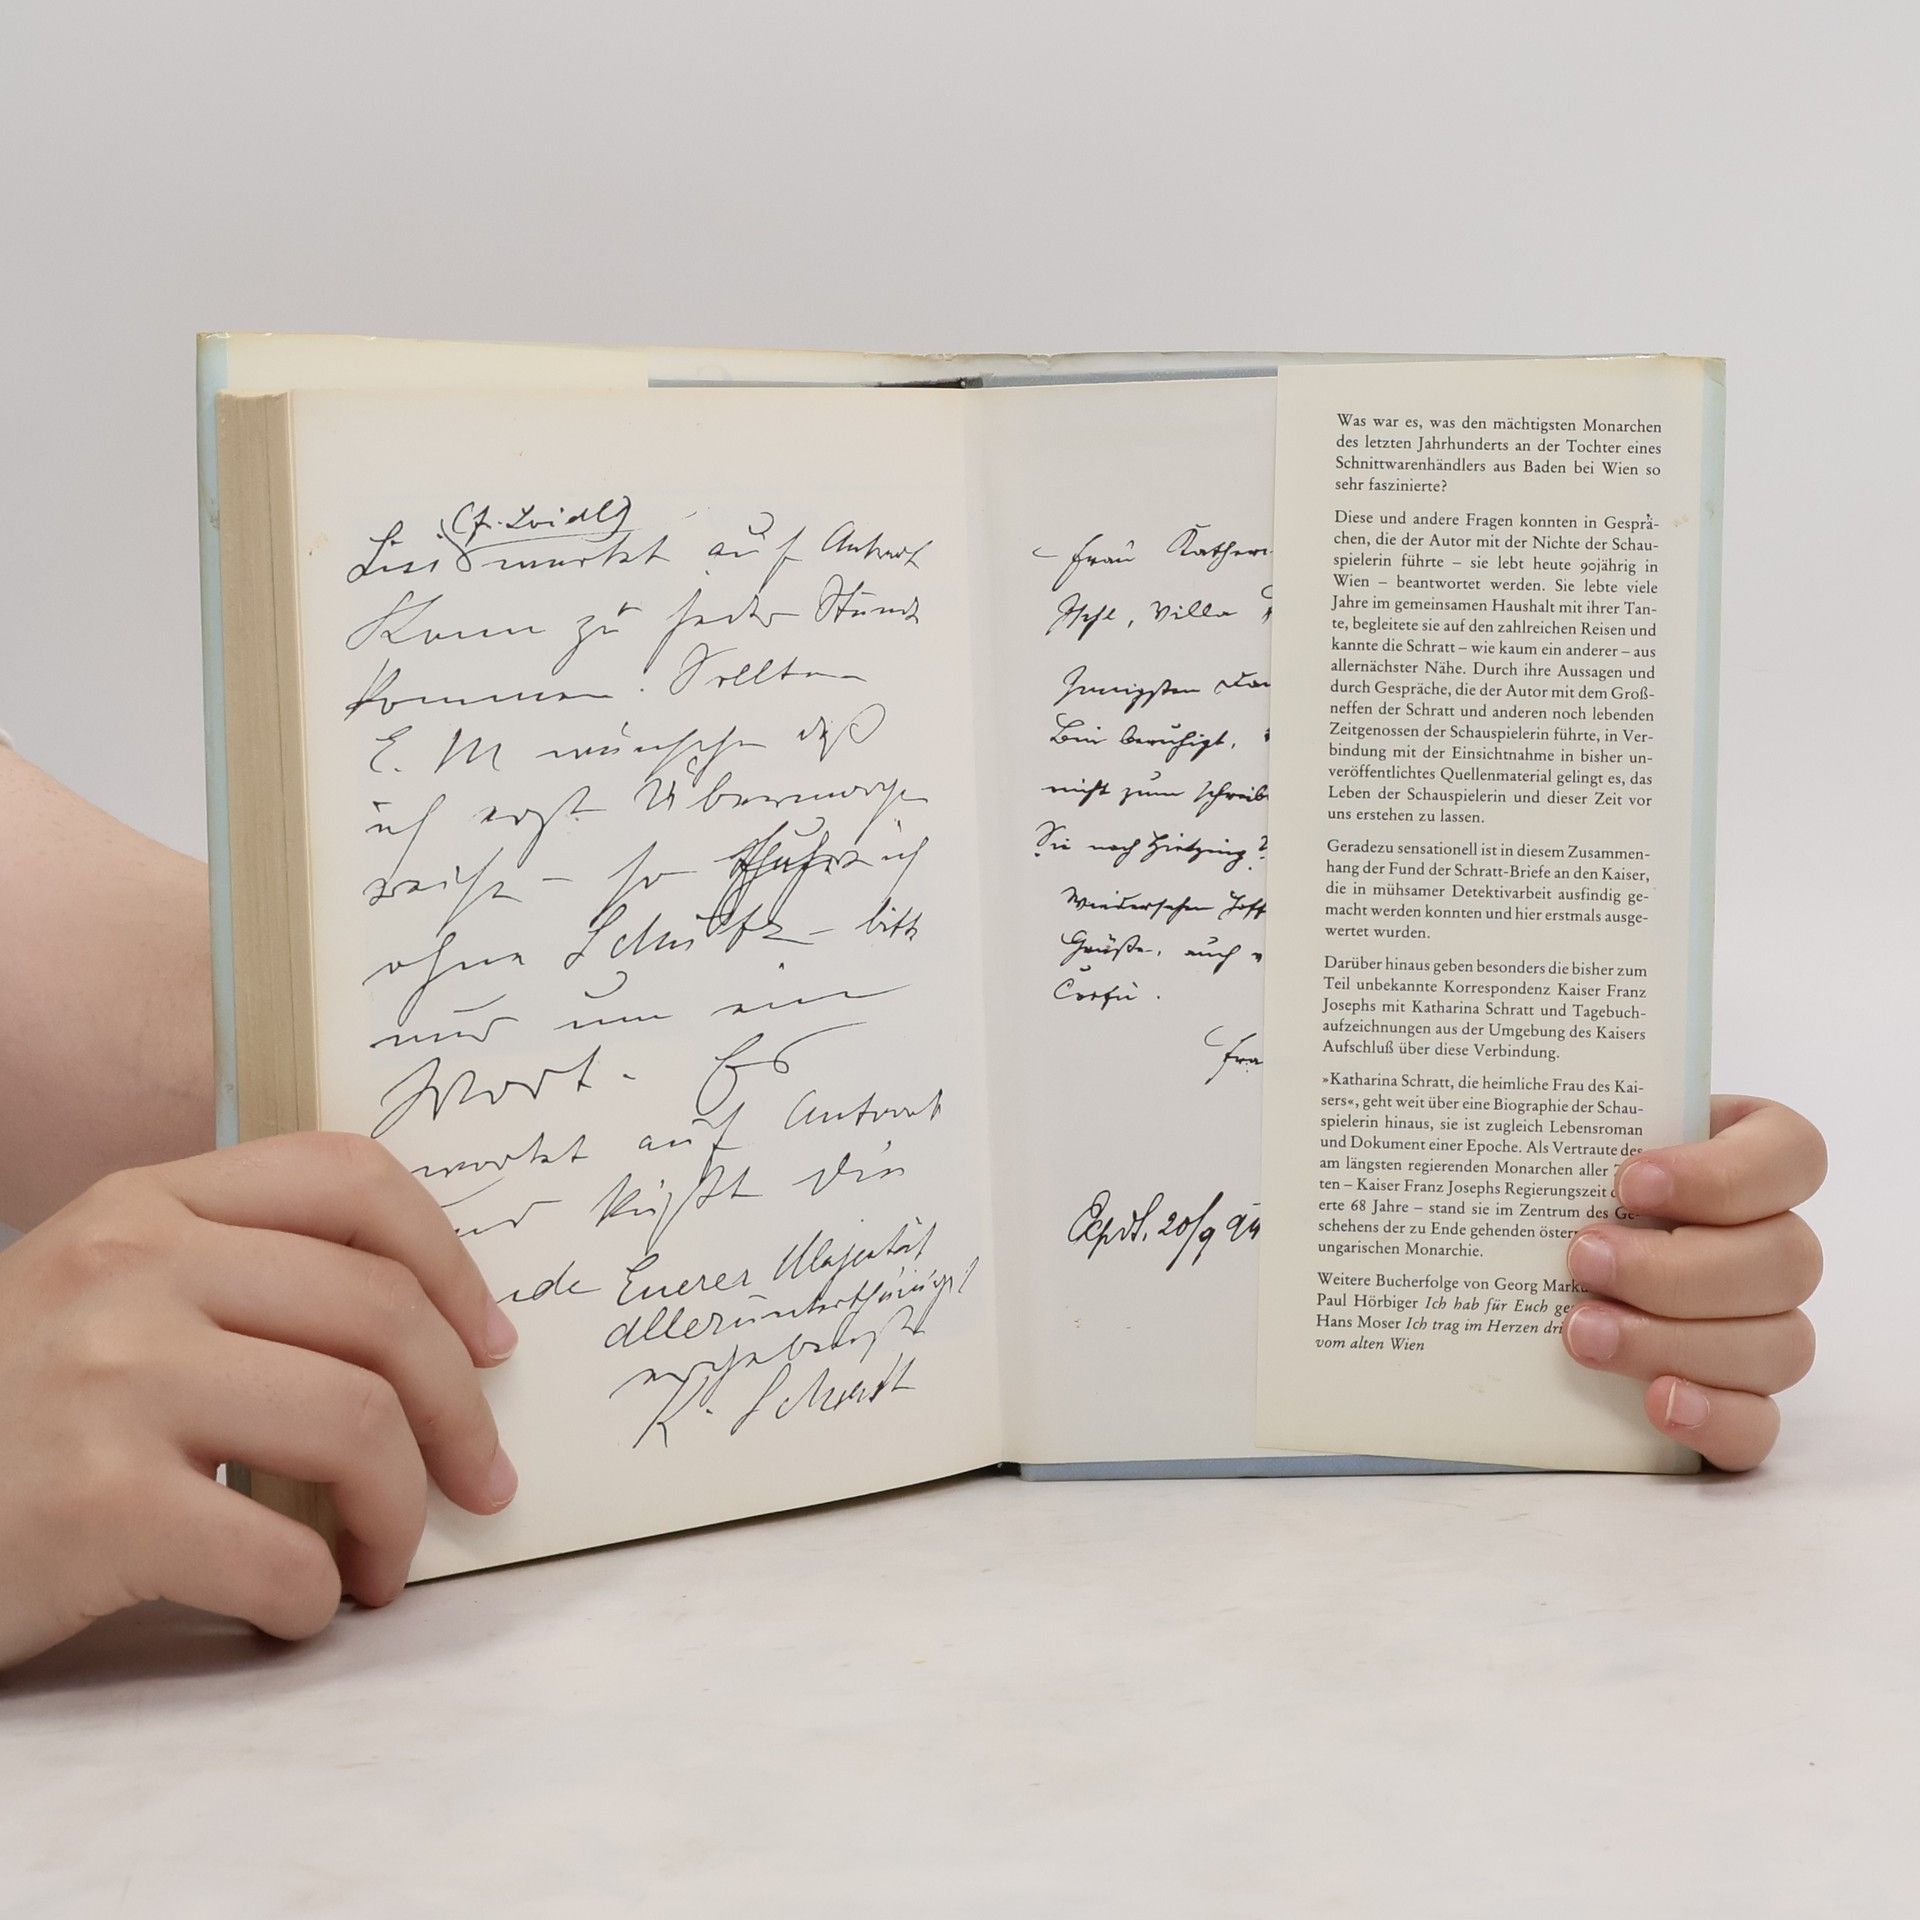 Lisi wartet auf Antwort
Kann zu jeder Stunde
kommen. Sollten
E. M wünschen daß
ich erst Übermorgen
reise – so fahre ich
ohne Schütz – bitte
nur um ein
Wort. Es
wartet auf Antwort
und küßt die
Euerer Majestät
allerunterthänigst
ergebenste
K. Schratt
Frau Kather
Ischl, Villa
Innigsten Dan
Bin beruhigt,
nicht zum schreib
Sie nach Hietzing?
Wiedersehen hoff
Grüße, auch
Corfu.
Fra
Expdt. 20/9 94
Was war es, was den mächtigsten Monarchen
des letzten Jahrhunderts an der Tochter eines
Schnittwarenhändlers aus Baden bei Wien so
sehr faszinierte?
Diese und andere Fragen konnten in Gesprä-
chen, die der Autor mit der Nichte der Schau-
spielerin führte – sie lebt heute 90jährig in
Wien – beantwortet werden. Sie lebte viele
Jahre im gemeinsamen Haushalt mit ihrer Tan-
te, begleitete sie auf den zahlreichen Reisen und
kannte die Schratt – wie kaum ein anderer – aus
allernächster Nähe. Durch ihre Aussagen und
durch Gespräche, die der Autor mit dem Groß-
neffen der Schratt und anderen noch lebenden
Zeitgenossen der Schauspielerin führte, in Ver-
bindung mit der Einsichtnahme in bisher un-
veröffentlichtes Quellenmaterial gelingt es, das
Leben der Schauspielerin und dieser Zeit vor
uns erstehen zu lassen.
Geradezu sensationell ist in diesem Zusammen-
hang der Fund der Schratt-Briefe an den Kaiser,
die in mühsamer Detektivarbeit ausfindig ge-
macht werden konnten und hier erstmals ausge-
wertet wurden.
Darüber hinaus geben besonders die bisher zum
Teil unbekannte Korrespondenz Kaiser Franz
Josephs mit Katharina Schratt und Tagebuch-
aufzeichnungen aus der Umgebung des Kaisers
Aufschluß über diese Verbindung.
»Katharina Schratt, die heimliche Frau des Kai-
sers«, geht weit über eine Biographie der Schau-
spielerin hinaus, sie ist zugleich Lebensroman
und Dokument einer Epoche. Als Vertraute des
am längsten regierenden Monarchen aller
ten – Kaiser Franz Josephs Regierungszeit
erte 68 Jahre – stand sie im Zentrum des Ge-
schehens der zu Ende gehenden öster
ungarischen Monarchie.
Weitere Bucherfolge von Georg Mark
Paul Hörbiger Ich hab für Euch ge
Hans Moser Ich trag im Herzen dri
vom alten Wien